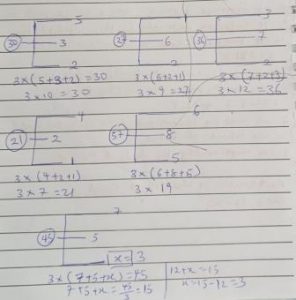 5
30 3
2
3×(5+3+2)=30
3×10=30
27 6
3×(6+2+1)
3×9=27
3
36 7
2
3×(7+2+3)
3×12=36
4
21 2
1
3×(4+2+1)
3×7=21
6
57 8
5
3×(6+8+5)
3×19
7
45 5
x=3
3×(7+5+x)=45
7+5+x=45/3=15
12+x=15
x=15-12=3